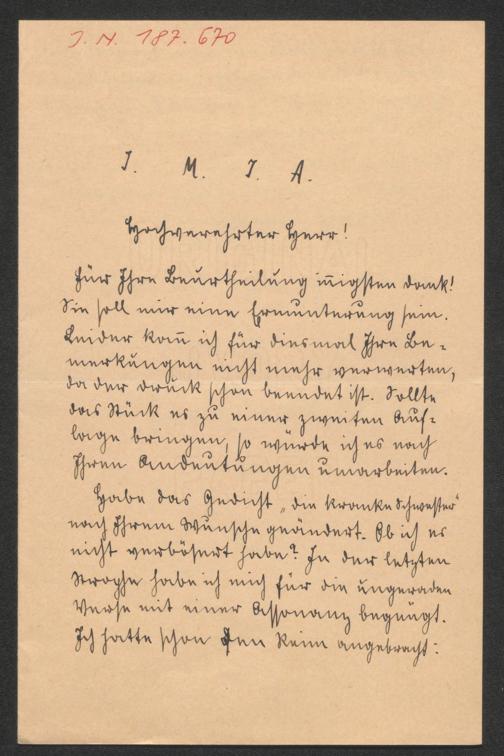 J. N. 187.670
J. M. J. A.
Hochverehrter Herr!
Für Ihre Beurtheilung innigsten Dank!
Sie soll mir eine Ermunterung sein.
Leider kann ich für diesmal Ihre Be-
merkungen nicht mehr verwerten,
da der Druck schon beendet ist. Sollte
das Stück es zu einer zweiten Auf-
lage bringen, so würde ich es nach
Ihren Andeutungen umarbeiten.
Habe das Gedicht „die kranke Schwester"
nach Ihrem Wunsche geändert. Ob ich es
nicht verbösert habe? In der letzten
Strophe habe ich mich für die ungeraden
Verse mit einer Assonanz begnügt.
Ich hatte schon den Reim angebracht: